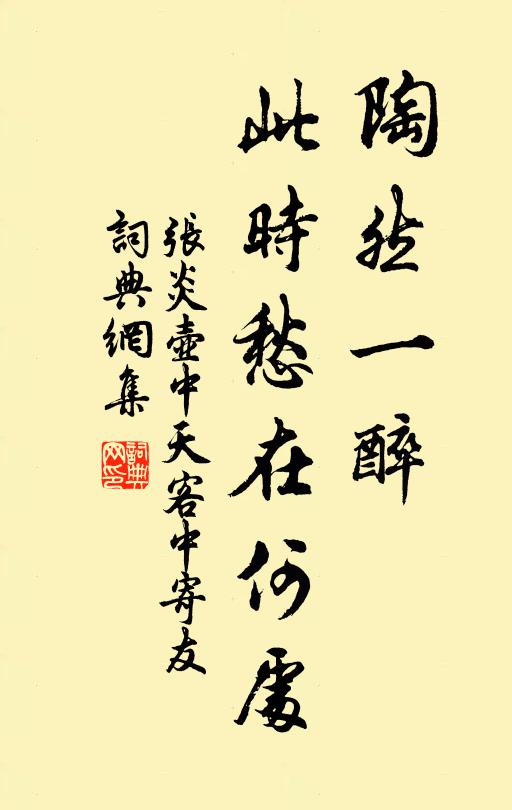 陶然一醉
此時愁在何處
張炎壺中天客中寄友
詞典網集
詞典網印